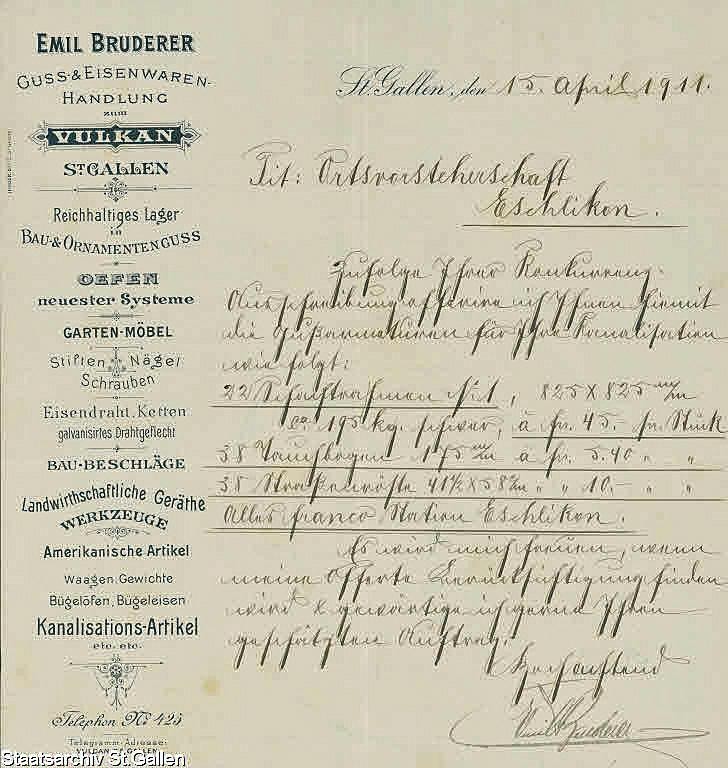 EMIL BRUDERER
GUSS- & EISENWAREN-
HANDLUNG
ZUM
VULKAN
ST GALLEN
Reichhaltiges Lager
in
BAU- & ORNAMENTENGUSS
OEFEN
neuester Systeme
GARTEN-MÖBEL
Stiften Nägel
Schrauben
Eisendraht, Ketten
galvanisirtes Drahtgeflecht
BAU-BESCHLÄGE
Landwirthschaftliche Geräthe
WERKZEUGE
Amerikanische Artikel
Waagen, Gewichte
Bügelöfen, Bügeleisen
Kanalisations-Artikel
etc. etc.
Telephon No 425
Telegramm-Adresse:
VULKAN ST. GALLEN
St. Gallen, den 15. April 1911.
Tit: Ortsvorsteherschaft
Eschlikon.
Zufolge Ihrer Konkurrenz-
Ausschreibung offerire ich Ihnen hiemit
die Gußarmaturen für Ihre Kanalisation
wie folgt:
22 Schachtrahmen No 1, 825 X 825 m/m
ca. 195 kg. schwer, à fr. 45.- pr. Stück
38 Tauchbogen 175 m/m à fr. 5.40 " "
38 Straßenröste 41½ X 58 c/m " " 10.- " "
Alles franco Station Eschlikon.
Es wird mich freuen, wenn
meine Offerte Berücksichtigung finden
wird & gewärtige ich gerne Ihren
geschätzten Auftrag.
Hochachtend
Emil Bruderer
Staatsarchiv St.Gallen